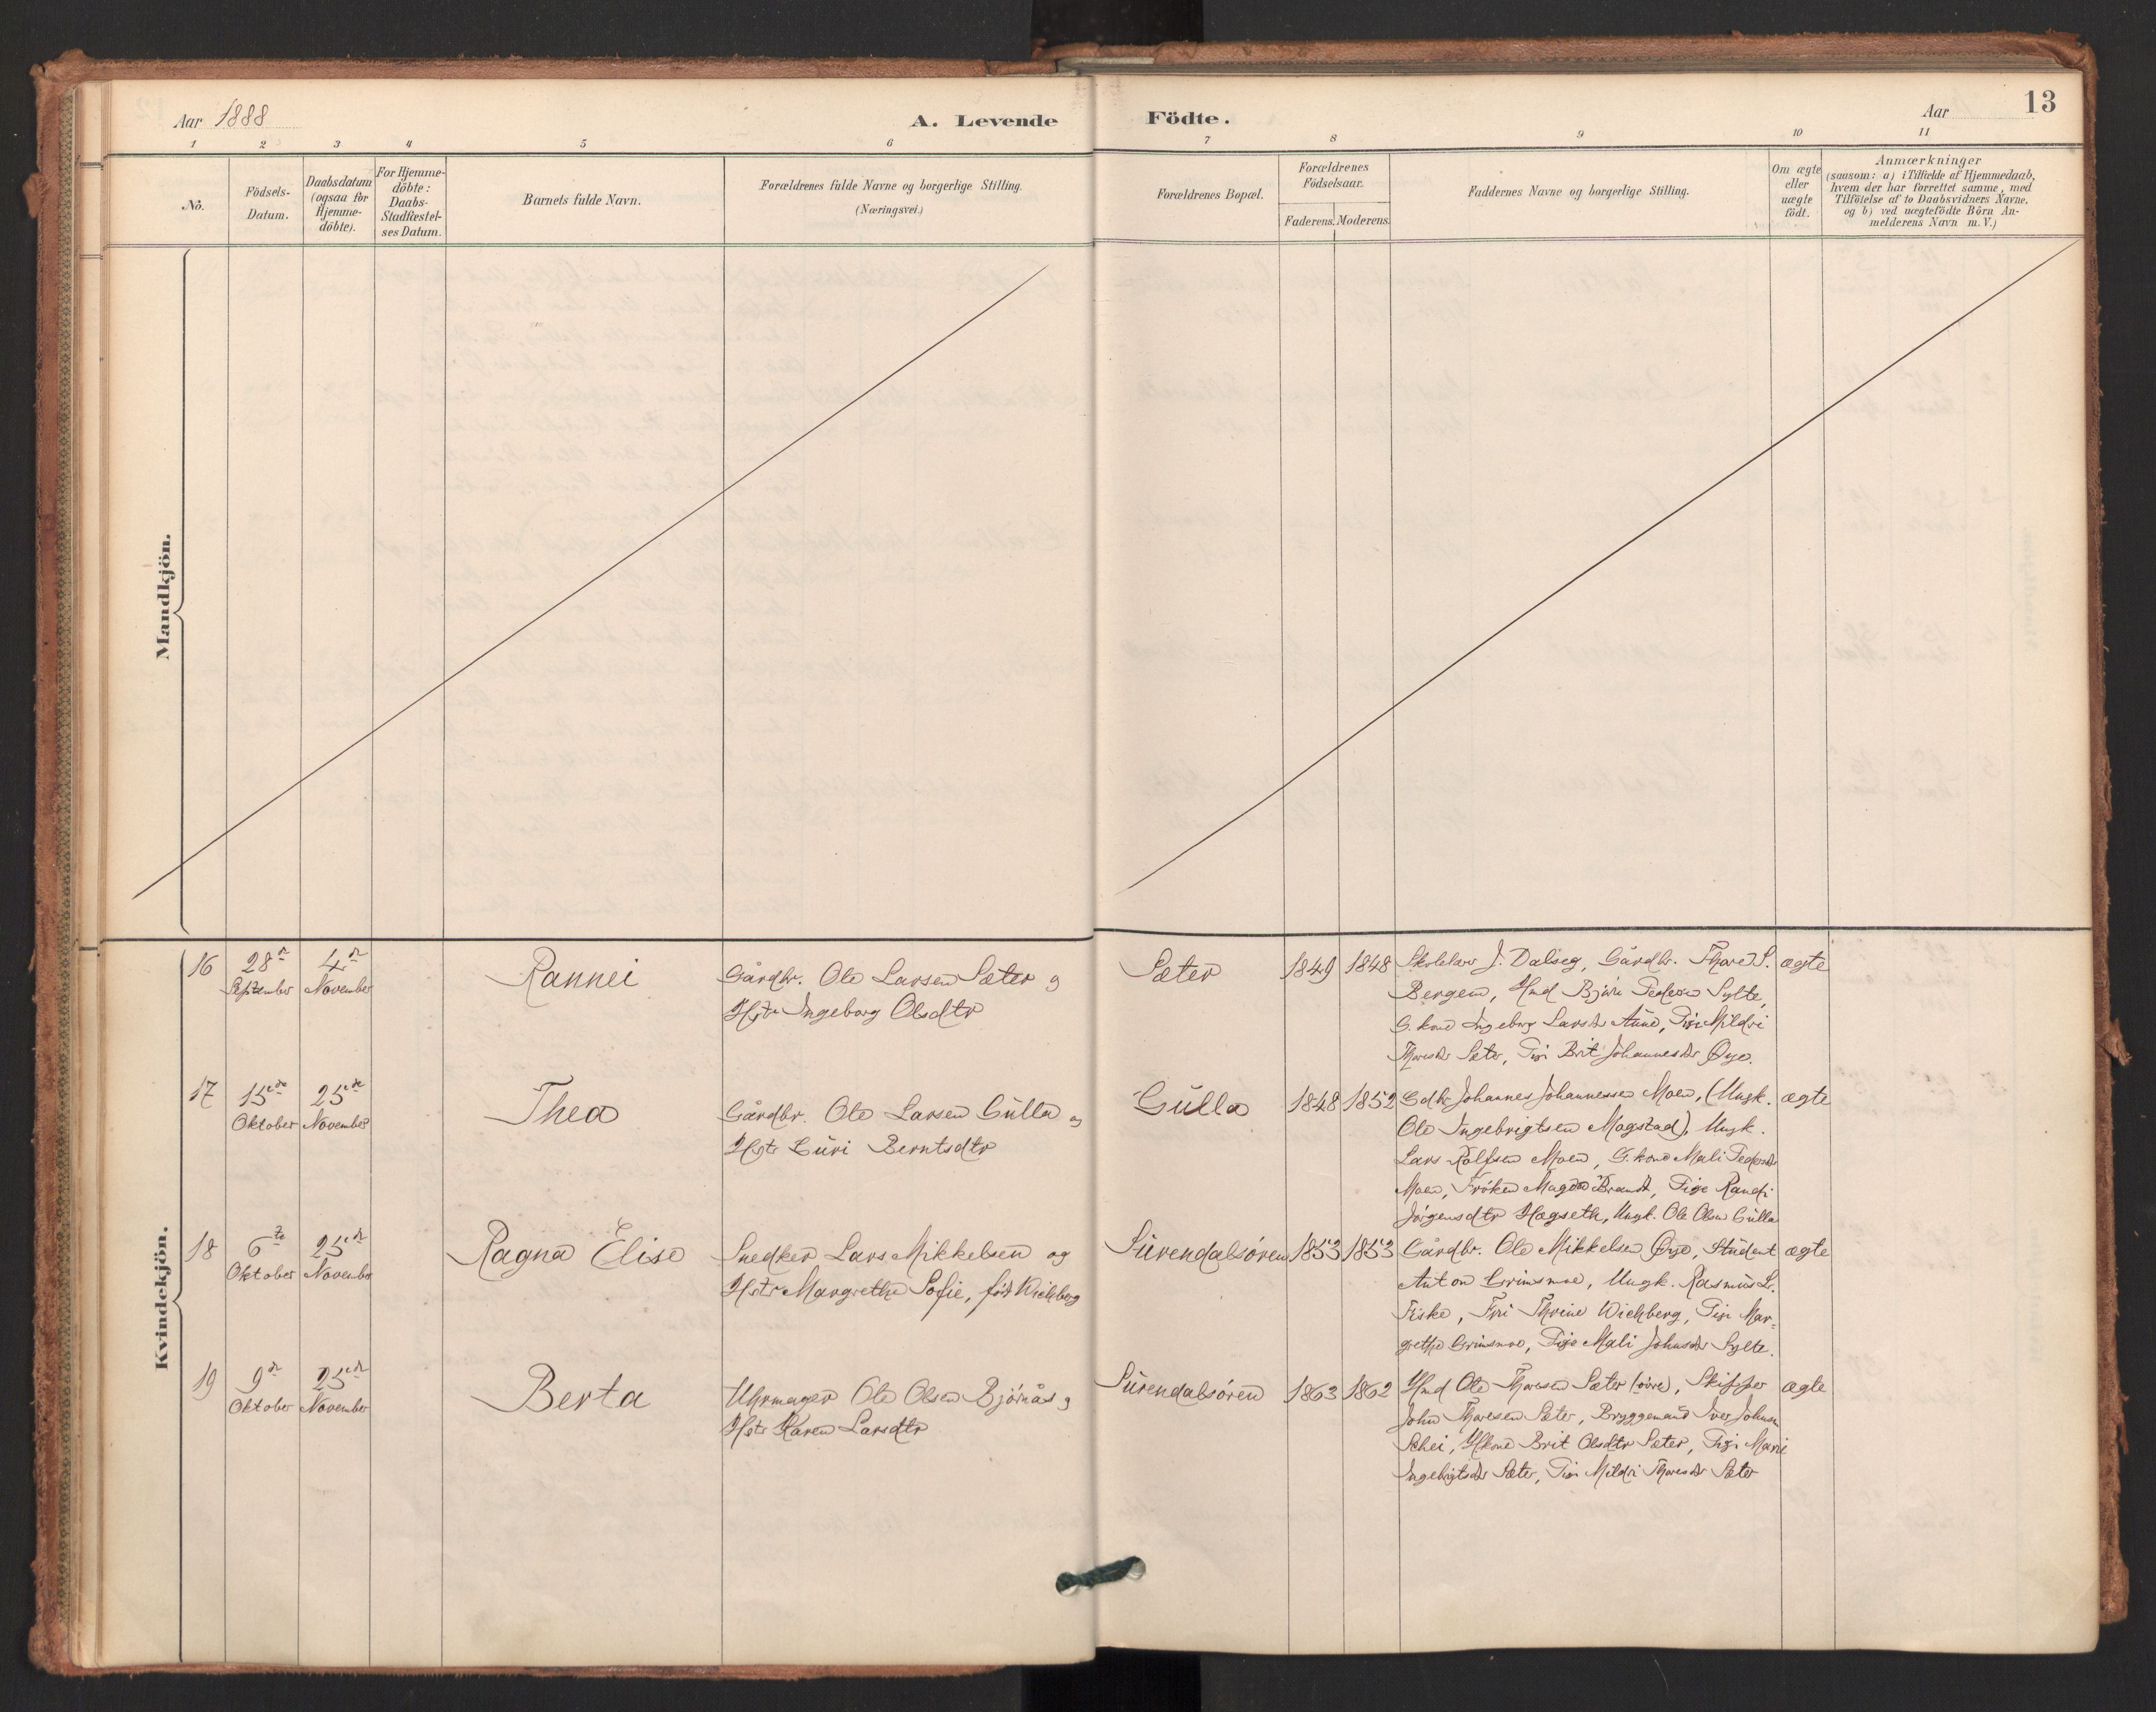 Aar 1888
A. Levende
Födte.
Aar
13
1 2 3 4 5 6 7 8 9 10 11
No.
Födsels-
Datum.
Daabsdatum
(ogsaa for
Hjemme-
döbte).
For Hjemme-
döbte:
Daabs-
Stadfæstel-
ses Datum.
Barnets fulde Navn.
Forældrenes fulde Navne og borgerlige Stilling.
(Næringsvei.)
Forældrenes Bopæl.
Forældrenes
Födselsaar.
Faderens. Moderens.
Faddernes Navne og borgerlige Stilling.
Om ægte
eller
uægte
födt.
Anmærkninger
(saasom: a) i Tilfælde af Hjemmedaab,
hvem der har forrettet samme, med
Tilföielse af to Daabsvidners Navne,
og b) ved uægtefödte Börn An-
melderens Navn m. V.)
Mandkjön.
Kvindekjön.
16
28de
September
4de
November
Rannei
Gårdbr. Ole Larsen Sæter og
Hstr Ingeborg Olsdtr
Sæter
1849 1848
J. Dalseg, Gårdbr. Thore S.
Bergem, Hmd Pedersen Sylte,
G.kone Ingeborg Larsdtr Aune, Pige Mildri
Thoresdtr Sæter, Pige Brit Johannesdtr Øye.
ægte
17
15de
Oktober
25de
November
Thea
Gårdbr. Ole Larsen Gulla og
Hstr Guri Berntsdtr
Gulla
1848 1852
Gdbr Johannes Johannessen Moen, (Ungk.
Ole Ingebrigtsen Mogstad), Ungk.
Lars Rolfsen Moen, G.kone Mali Pedersdtr
Moen, Frøken Magda Brandt, Pige Randi
Jørgensdtr Hagseth, Ungk. Ole Olsen Gulla
ægte
18
6te
Oktober
25de
November
Ragna Elise
Snedker Lars Mikkelsen og
Hstr Margrethe Sofie, født Wichberg
Surendalsøren
1853 1853
Gårdbr. Ole Mikkelsen Øye, Student
Anton Grimsmoe, Ungk. Rasmus L.
Fiske, Thrine Wichberg, Pige Mar-
grethe Grimsmoe, Pige Mali Johnsdtr Sylte.
ægte
19
9de
Oktober
25de
November
Berta
Uhrmager Ole Olsen Bjørnås og
Hstr Karen Larsdtr
Surendalsøren
1863 1862
Hmd Ole Thoresen Sæter (øvre), Skipper
John Thoresen Sæter, Bryggemand Iver Johnsen
Schei, Hkone Brit Olsdtr Sæter, Pige Marie
Ingebrigtsdtr Sæter, Pige Mildri Thoresdtr Sæter
ægte